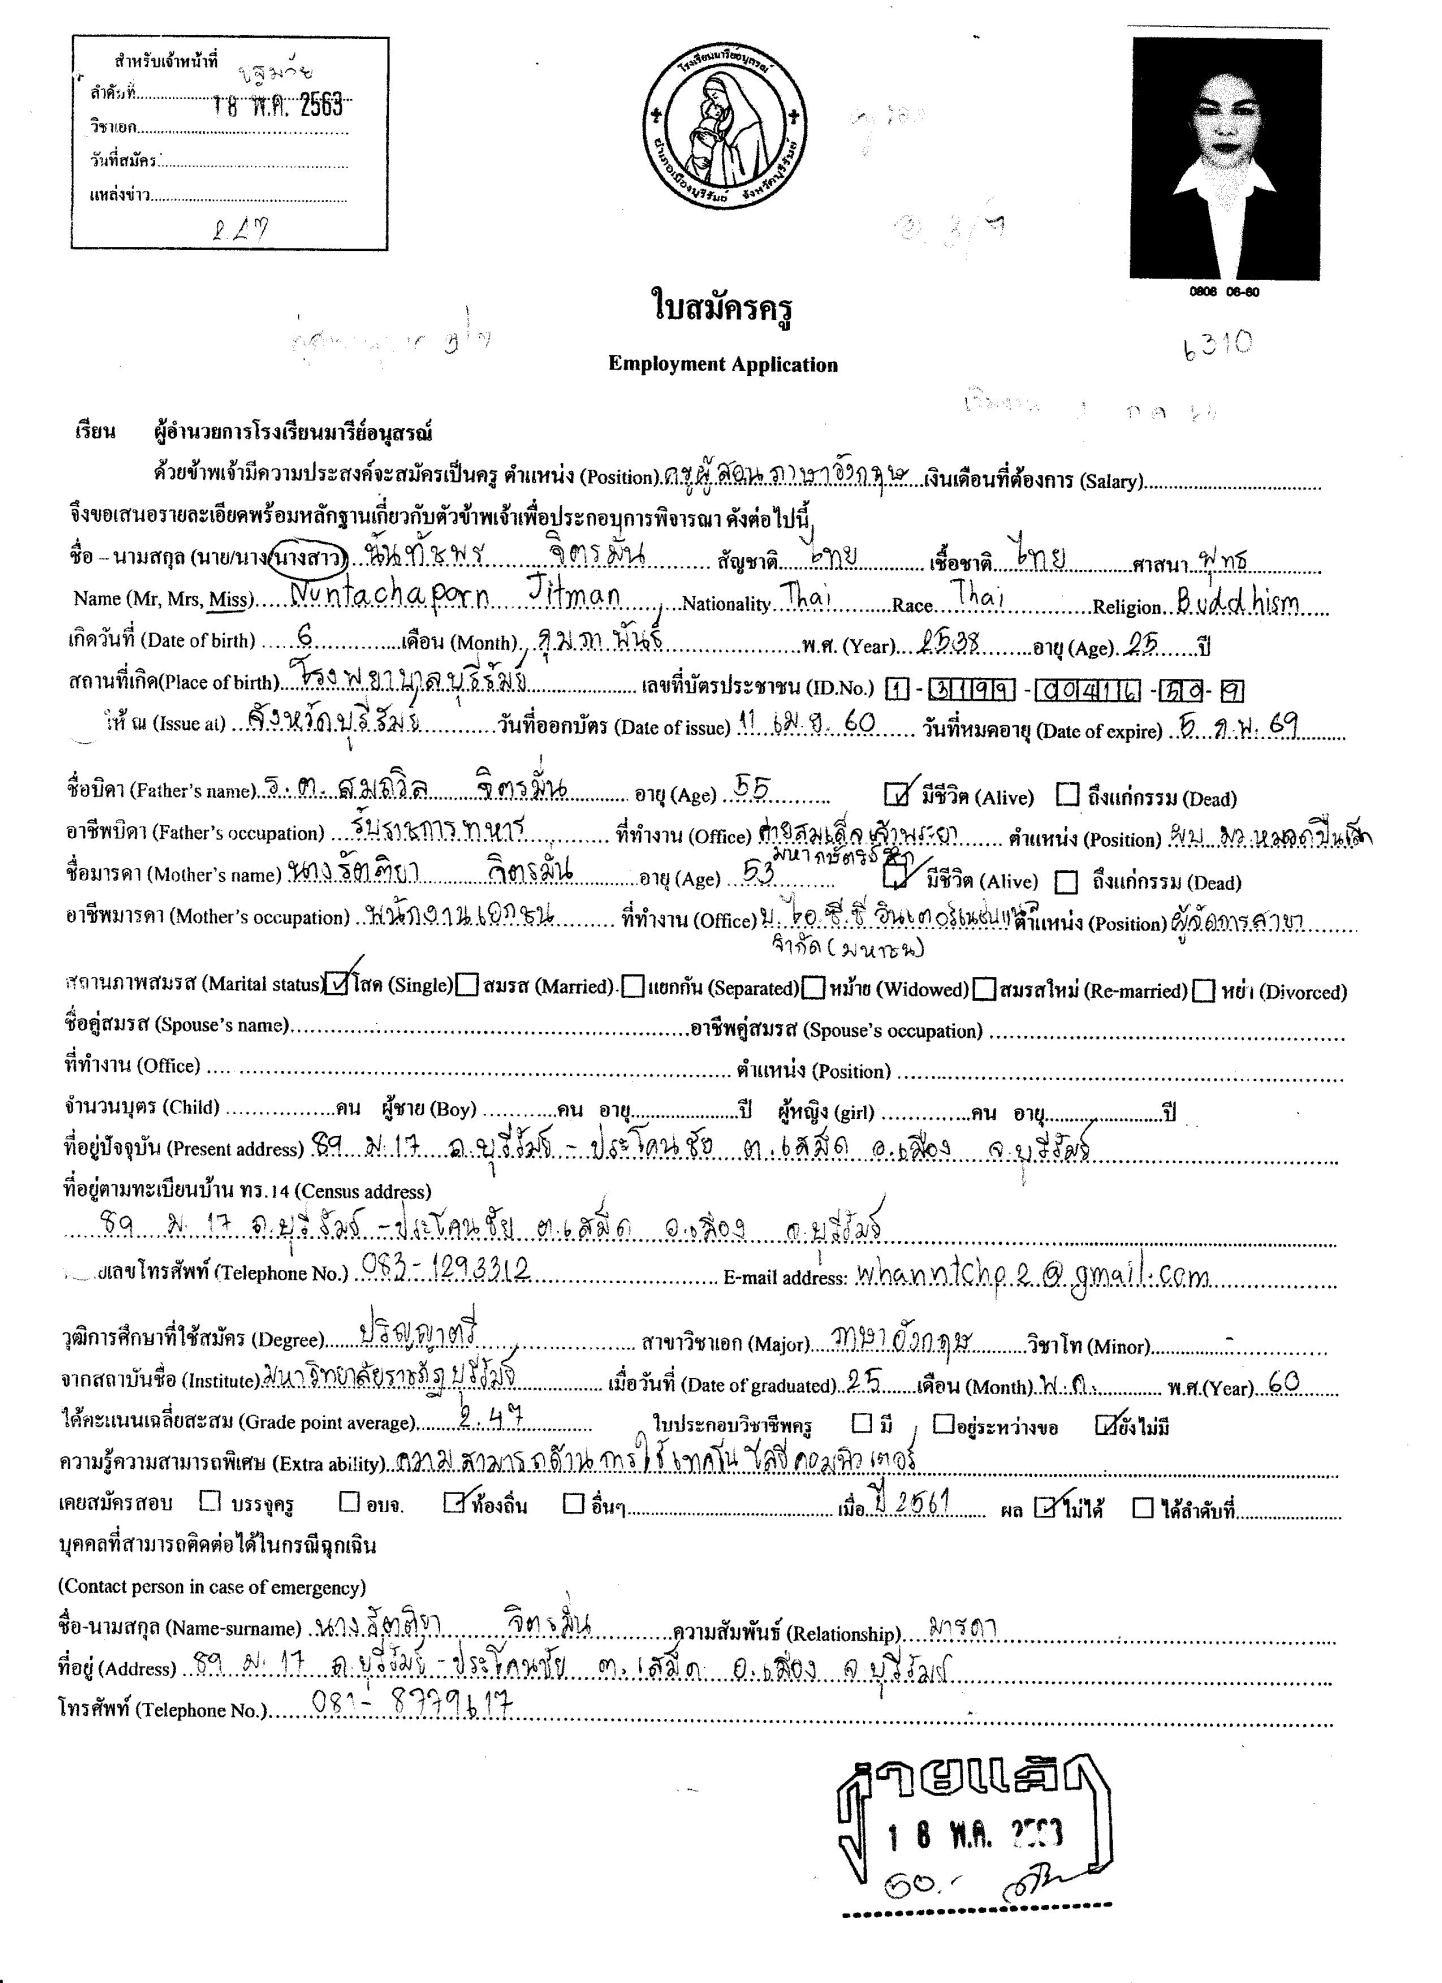 สำหรับเจ้าหน้าที่
ปฐมวัย
ลำดับที่
18 พ.ค. 2563
วิชาเอก
วันที่สมัคร
แหล่งข่าว
2.47
โรงเรียนมารีย์อนุสรณ์
อำเภอเมืองบุรีรัมย์ จังหวัดบุรีรัมย์
0806 06-60
ใบสมัครครู
6310
Employment Application
เริ่มงาน 1 ก.ค.
เรียน ผู้อำนวยการโรงเรียนมารีย์อนุสรณ์
ด้วยข้าพเจ้ามีความประสงค์จะสมัครเป็นครู ตำแหน่ง (Position) ครูผู้สอนภาษาอังกฤษ เงินเดือนที่ต้องการ (Salary)
จึงขอเสนอรายละเอียดพร้อมหลักฐานเกี่ยวกับตัวข้าพเจ้าเพื่อประกอบการพิจารณา ดังต่อไปนี้
ชื่อ – นามสกุล (นาย/นาง/นางสาว) นันทัชพร จิตรมั่น สัญชาติ ไทย เชื้อชาติ ไทย ศาสนา พุทธ
Name (Mr, Mrs, Miss) Nuntachaporn Jitman Nationality Thai Race Thai Religion Buddhism
เกิดวันที่ (Date of birth) 6 เดือน (Month) กุมภาพันธ์ พ.ศ. (Year) 2538 อายุ (Age) 25 ปี
สถานที่เกิด(Place of birth) โรงพยาบาลบุรีรัมย์ เลขที่บัตรประชาชน (ID.No.) 1-3199-00416-50-9
ให้ ณ (Issue at) จังหวัดบุรีรัมย์ วันที่ออกบัตร (Date of issue) 11 เม.ย. 60 วันที่หมดอายุ (Date of expire) 5 ก.พ. 69
ชื่อบิดา (Father's name) ร.ต. สมถวิล จิตรมั่น อายุ (Age) 55 มีชีวิต (Alive) ถึงแก่กรรม (Dead)
อาชีพบิดา (Father's occupation) รับราชการทหาร ที่ทำงาน (Office) ค่ายสมเด็จเจ้าพระยา ตำแหน่ง (Position) ผบ. มว.
มหากษัตริย์ศึก
ชื่อมารดา (Mother's name) นางรัตติยา จิตรมั่น อายุ (Age) 53 มีชีวิต (Alive) ถึงแก่กรรม (Dead)
อาชีพมารดา (Mother's occupation) พนักงานเอกชน ที่ทำงาน (Office) บ. ไอ.ซี.ซี อินเตอร์เนชั่นแนล ตำแหน่ง (Position) ผู้จัดการสาขา
จำกัด (มหาชน)
สถานภาพสมรส (Marital status) โสด (Single) สมรส (Married) แยกกัน (Separated) หม้าย (Widowed) สมรสใหม่ (Re-married) หย่า (Divorced)
ชื่อคู่สมรส (Spouse's name) อาชีพคู่สมรส (Spouse's occupation)
ที่ทำงาน (Office) ตำแหน่ง (Position)
จำนวนบุตร (Child) คน ผู้ชาย (Boy) คน อายุ ปี ผู้หญิง (girl) คน อายุ ปี
ที่อยู่ปัจจุบัน (Present address) 89 ม.17 ถ.บุรีรัมย์ - ประโคนชัย ต.เสม็ด อ.เมือง จ.บุรีรัมย์
ที่อยู่ตามทะเบียนบ้าน ทร.14 (Census address)
89 ม. 17 ถ.บุรีรัมย์ -ประโคนชัย ต.เสม็ด อ.เมือง จ.บุรีรัมย์
เลขโทรศัพท์ (Telephone No.) 083-1293312 E-mail address: whanntchp2@gmail.com
วุฒิการศึกษาที่ใช้สมัคร (Degree) ปริญญาตรี สาขาวิชาเอก (Major) ภาษาอังกฤษ วิชาโท (Minor) -
จากสถาบันชื่อ (Institute) มหาวิทยาลัยราชภัฏบุรีรัมย์ เมื่อวันที่ (Date of graduated) 25 เดือน (Month) พ.ค. พ.ศ.(Year) 60
ได้คะแนนเฉลี่ยสะสม (Grade point average) 2.47 ใบประกอบวิชาชีพครู มี อยู่ระหว่างขอ ยังไม่มี
ความรู้ความสามารถพิเศษ (Extra ability) ความสามารถด้านการใช้เทคโนโลยีคอมพิวเตอร์
เคยสมัครสอบ บรรจุครู อบจ. ท้องถิ่น อื่นๆ เมื่อ ปี 2561 ผล ไม่ได้ ได้ลำดับที่
บุคคลที่สามารถติดต่อได้ในกรณีฉุกเฉิน
(Contact person in case of emergency)
ชื่อ-นามสกุล (Name-surname) นางรัตติยา จิตรมั่น ความสัมพันธ์ (Relationship) มารดา
ที่อยู่ (Address) 89 ม. 17 ถ.บุรีรัมย์ -ประโคนชัย ต.เสม็ด อ.เมือง จ.บุรีรัมย์
โทรศัพท์ (Telephone No.) 081-8779617
จ่ายแล้ว
18 พ.ค. 2563
50.-